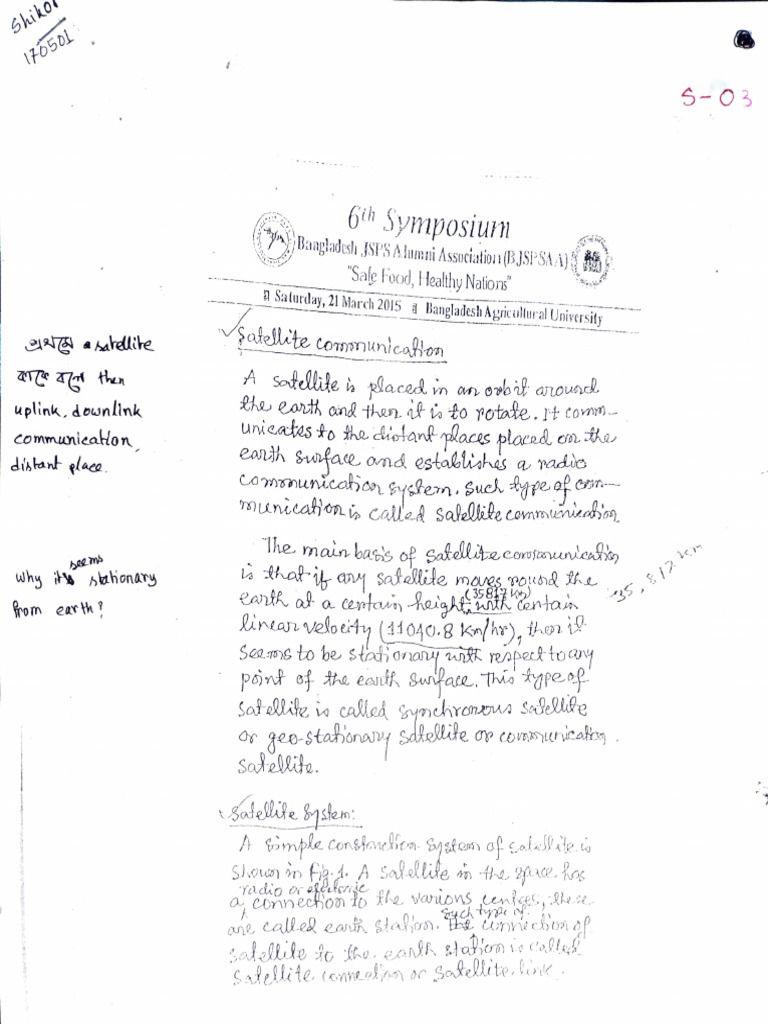 Shikor
170501
S-03
6th Symposium
Bangladesh JSPS Alumni Association (BJSPSAA)
"Safe Food, Healthy Nations"
Saturday, 21 March 2015 Bangladesh Agricultural University
Satellite communication
প্রথমে satellite
কাকে বলে then
uplink, downlink
communication,
distant place.
A satellite is placed in an orbit around
the earth and then it is to rotate. It comm-
unicates to the distant places placed on the
earth surface and establishes a radio
communication system. Such type of com-
munication is called satellite communication
The main basis of satellite communication
is that if any satellite moves round the
earth at a certain height (35817 km) with centain
35,817 km
linear velocity (11040.8 km/hr), then it
seems to be stationary with respect to any
point of the earth surface. This type of
satellite is called synchronous satellite
or geo-stationary satellite or communication
satellite.
why it seems stationary
from earth?
Satellite System:
A simple construction system of satellite is
shown in Fig. 1. A satellite in the space has
a radio or electronic connection to the various centres, these
are called earth station. Such type of connection of
satellite to the earth station is called
satellite connection or satellite link.